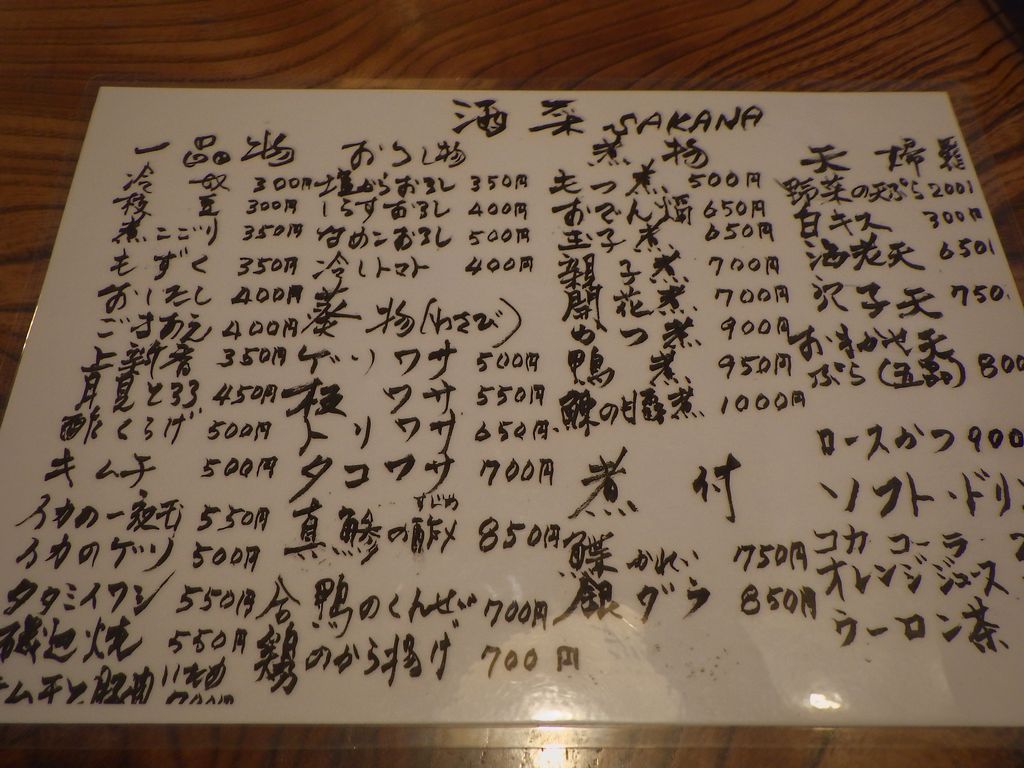 酒菜 SAKANA
一品物
冷奴 300円
枝豆 300円
煮こごり 350円
もずく 350円
おしたし 400円
ごまあえ 400円
上新香 350円
月見とろろ 450円
酢くらげ 500円
キムチ 500円
イカの一夜干 550円
イカのゲソ 500円
タタミイワシ 550円
磯辺焼 550円
キムチと豚肉いため 700円
おろし物
塩からおろし 350円
しらすおろし 400円
なめこおろし 500円
冷しトマト 400円
葵物(わさび)
ゲソワサ 500円
板ワサ 550円
トリワサ 650円
タコワサ 700円
真鯵の酢〆 すじめ 850円
合鴨のくんせい 700円
鶏のから揚げ 700円
煮物
もつ煮 500円
おでん 650円
玉子煮 650円
親子煮 700円
開花煮 700円
カツ煮 900円
鴨煮 950円
鰊の甘露煮 1000円
煮付
鰈 かれい 750円
銀ダラ 850円
天婦羅
野菜の天ぷら 200
白キス 300円
海老天 650
穴子天 750
おまかせ天
ぷら(五品) 800
ロースかつ 900
ソフト・ドリン
コカコーラ
オレンジジュース
ウーロン茶